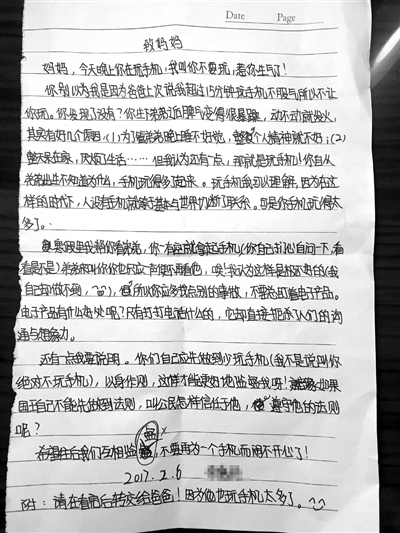 Date Page
致妈妈
妈妈，今天晚上你在玩手机，我叫你不要玩，惹你生气了！
你别以为我是因为爸爸上次说我超过15分钟玩手机不服气所以不让
你玩。你发现了没有？你生下弟弟之后脾气变得很暴躁，动不动就发火，
其实有好几个原因：（1）为了宝弟弟晚上睡不好觉，整个人精神就不好；（2）
整天呆在家，厌烦了生活……但我认为还有一点，那就是玩手机！你自从
弟弟出生不知道为什么，手机玩得多了起来。玩手机我可以理解，因为在这
样的时代下，人没有手机就等于基本与世界切断了联系。可是你手机玩得太
多了。
如果假期我帮你看弟弟，你一有空就会拿起手机（你自己扪心自问一下，看
看是不是）弟弟叫你你也只应一声便不再看他，唉！我认为这样是极不好的（我
自己却做不到，），所以你应多找点别的事做，不要总盯着电子产品。
电子产品有什么好处呢？只有打打电话什么的，它却直接把杀了人们的沟
通与想象力。
还有一点我要说明。你们自己应先做到少玩手机（我不是说叫你
绝对不玩手机），以身作则，这样才能更好地监督我呀！如果
国王自己不能先做到法则，叫公民怎样信任于他，遵守他的法则
呢？
希望往后我们互相监督，不要再为一个手机而闹不开心了！
2017.2.6
附：请在看后转交给爸爸！因为他也玩手机太多了。